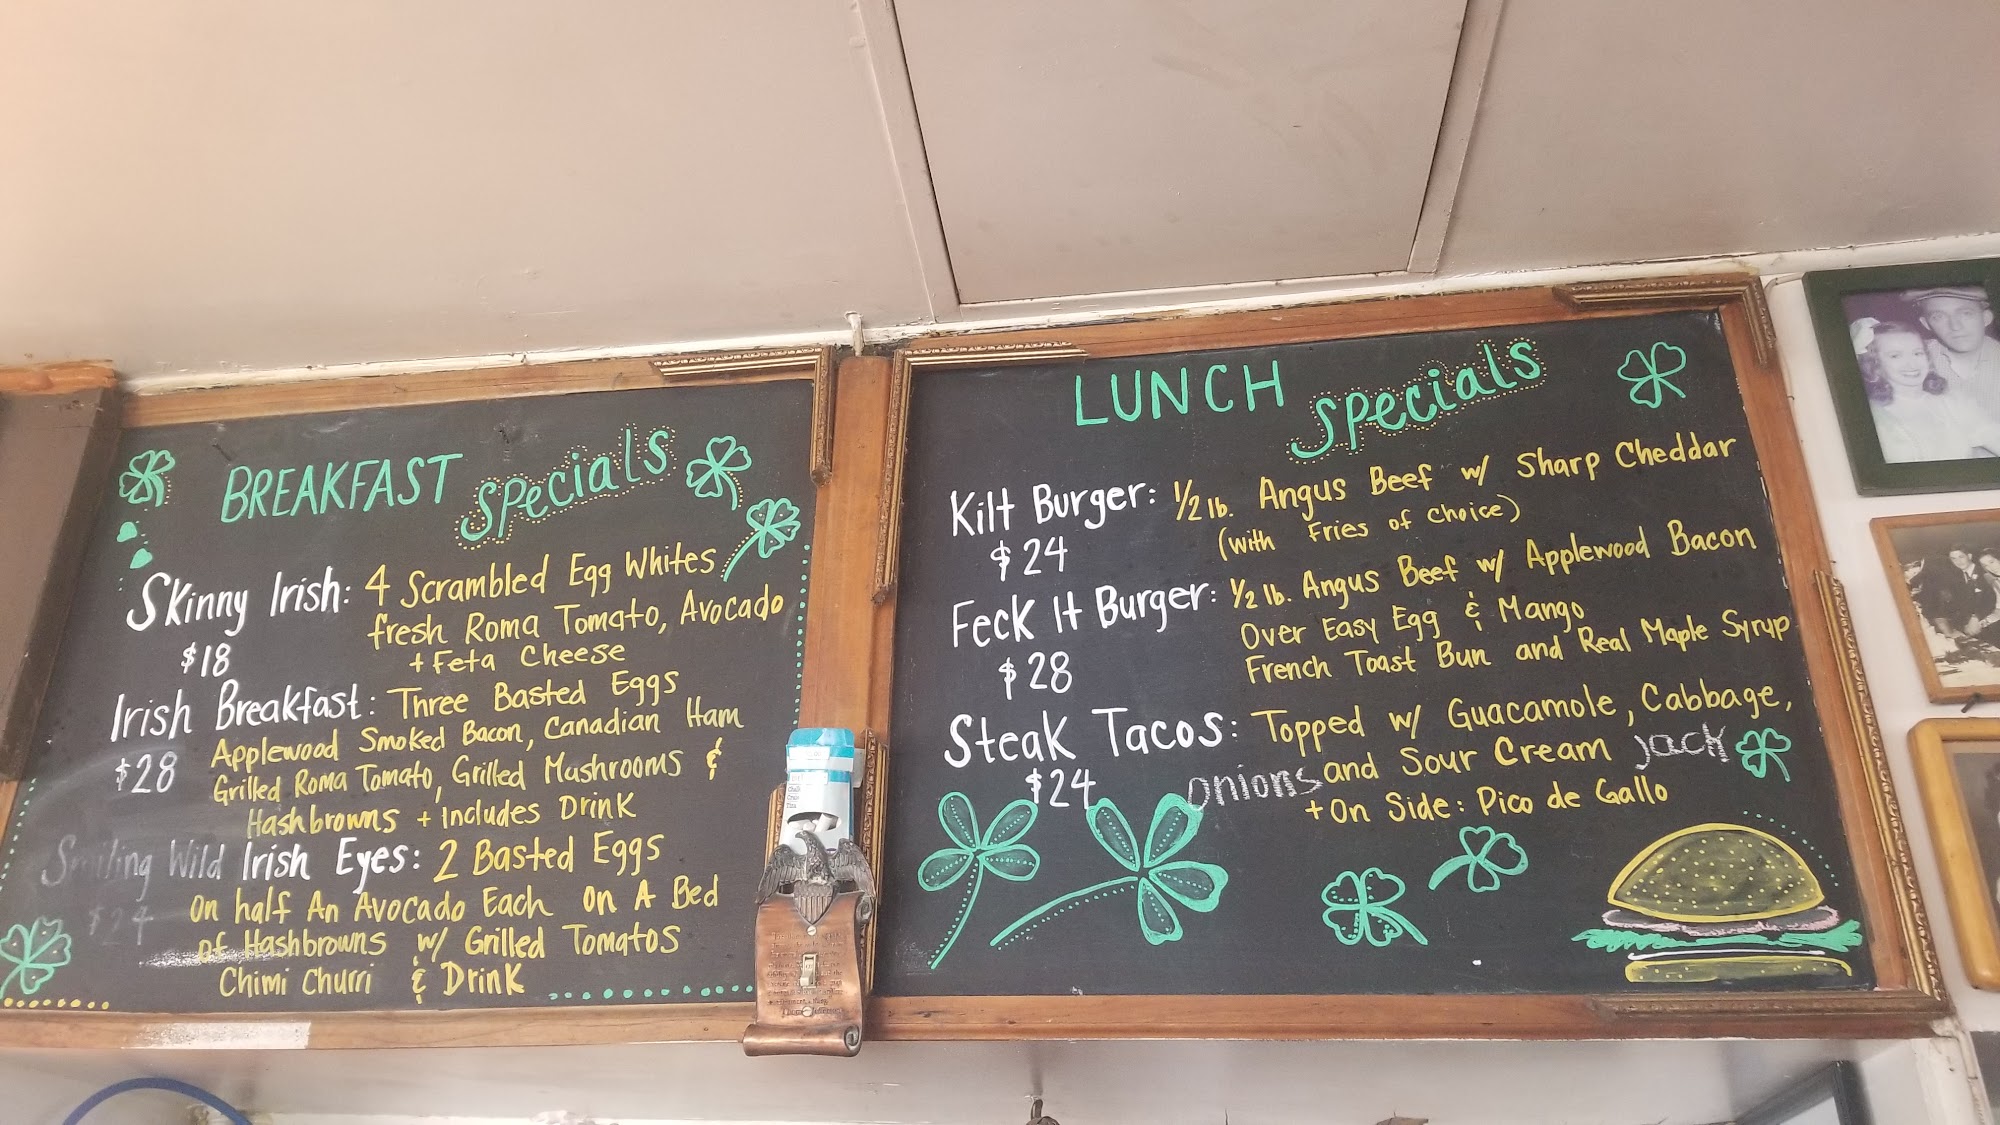 BREAKFAST specials
Skinny Irish: 4 Scrambled Egg Whites
fresh Roma Tomato, Avocado
$18
+ Feta Cheese
Irish Breakfast: Three Basted Eggs
$28
Applewood Smoked Bacon, Canadian Ham
Grilled Roma Tomato, Grilled Mushrooms &
Hashbrowns + Includes Drink
Smiling Wild Irish Eyes: 2 Basted Eggs
$24
on half An Avocado Each on A Bed
of Hashbrowns w/ Grilled Tomatos
Chimi Churri & Drink
LUNCH specials
Kilt Burger: 1/2 lb. Angus Beef w/ Sharp Cheddar
$24
(with Fries of Choice)
Feck It Burger: 1/2 lb. Angus Beef w/ Applewood Bacon
$28
Over Easy Egg & Mango
French Toast Bun and Real Maple Syrup
Steak Tacos: Topped w/ Guacamole, Cabbage,
$24
onions and Sour Cream jack
+ On Side: Pico de Gallo